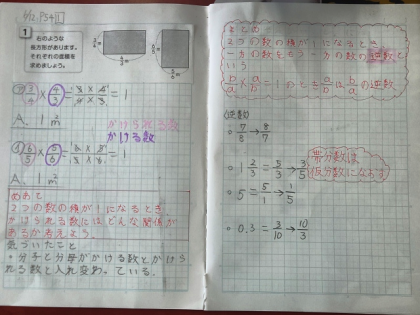 5/12 P54 1
1
右のような
長方形があります。
それぞれの面積を
求めましょう。
3/4 × 4/3 = 3×4/4×3 = 1
A. 1 m²
かけられる数
かける数
6/5 × 5/6 = 6×5/5×6 = 1
A. 1 m²
めあて
2つの数の積が1になるとき
かけられる数にはどんな関係が
あるか考えよう。
気づいたこと
・分子と分母がかける数とかけら
れる数と入れ変わっている。
まとめ
2つの数の積が1になるとき
一方の数をもう一方の数の逆数と
いう
b/a × a/b = 1のとき a/b は b/a の逆数
〈逆数〉
○ 7/8 → 8/7
○ 1 2/3 = 5/3 → 3/5
○ 5 = 5/1 → 1/5
○ 0.3 = 3/10 → 10/3
帯分数は
仮分数になおす